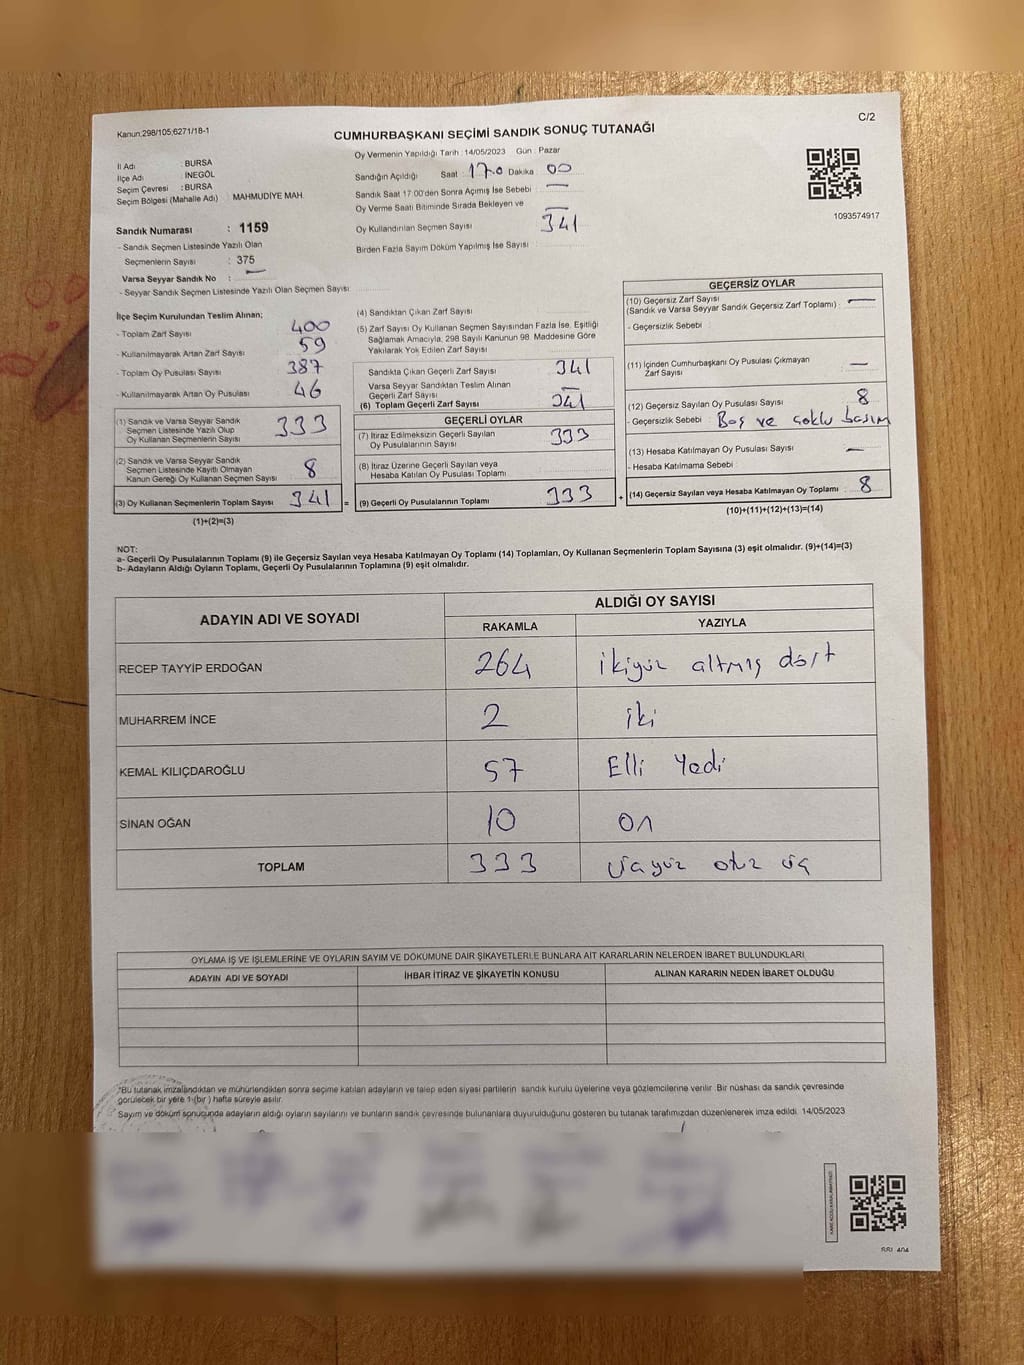 Kanun;298/105;6271/18-1
C/2
CUMHURBAŞKANI SEÇİMİ SANDIK SONUÇ TUTANAĞI
İl Adı : BURSA
İlçe Adı : İNEGÖL
Seçim Çevresi : BURSA
Seçim Bölgesi (Mahalle Adı) : MAHMUDİYE MAH.
Sandık Numarası : 1159
- Sandık Seçmen Listesinde Yazılı Olan
Seçmenlerin Sayısı : 375
Varsa Seyyar Sandık No : —
- Seyyar Sandık Seçmen Listesinde Yazılı Olan Seçmen Sayısı:
Oy Vermenin Yapıldığı Tarih : 14/05/2023 Gün : Pazar
Sandığın Açıldığı Saat : 17.0 Dakika 00
Sandık Saat 17:00'den Sonra Açımış İse Sebebi —
Oy Verme Saati Bitiminde Sırada Bekleyen ve —
Oy Kullandırılan Seçmen Sayısı 341
Birden Fazla Sayım Döküm Yapılmış İse Sayısı :
1093574917
İlçe Seçim Kurulundan Teslim Alınan;
- Toplam Zarf Sayısı 400
- Kullanılmayarak Artan Zarf Sayısı 59
- Toplam Oy Pusulası Sayısı 387
- Kullanılmayarak Artan Oy Pusulası 46
(1) Sandık ve Varsa Seyyar Sandık
Seçmen Listesinde Yazılı Olup
Oy Kullanan Seçmenlerin Sayısı 333
(2) Sandık ve Varsa Seyyar Sandık
Seçmen Listesinde Kayıtlı Olmayan
Kanun Gereği Oy Kullanan Seçmen Sayısı 8
(3) Oy Kullanan Seçmenlerin Toplam Sayısı 341 =
(1)+(2)=(3)
(4) Sandıktan Çıkan Zarf Sayısı
(5) Zarf Sayısı Oy Kullanan Seçmen Sayısından Fazla İse, Eşitliği
Sağlamak Amacıyla, 298 Sayılı Kanunun 98. Maddesine Göre
Yakılarak Yok Edilen Zarf Sayısı
Sandıkta Çıkan Geçerli Zarf Sayısı 341
Varsa Seyyar Sandıktan Teslim Alınan
Geçerli Zarf Sayısı —
(6) Toplam Geçerli Zarf Sayısı 341
GEÇERLİ OYLAR
(7) İtiraz Edilmeksizin Geçerli Sayılan
Oy Pusulalarının Sayısı 333
(8) İtiraz Üzerine Geçerli Sayılan veya
Hesaba Katılan Oy Pusulası Toplamı
(9) Geçerli Oy Pusulalarının Toplamı 333 +
GEÇERSİZ OYLAR
(10) Geçersiz Zarf Sayısı
(Sandık ve Varsa Seyyar Sandık Geçersiz Zarf Toplamı) : —
- Geçersizlik Sebebi :
(11) İçinden Cumhurbaşkanı Oy Pusulası Çıkmayan
Zarf Sayısı —
(12) Geçersiz Sayılan Oy Pusulası Sayısı 8
- Geçersizlik Sebebi : Boş ve çoklu basım
(13) Hesaba Katılmayan Oy Pusulası Sayısı —
- Hesaba Katılmama Sebebi :
(14) Geçersiz Sayılan veya Hesaba Katılmayan Oy Toplamı : 8
(10)+(11)+(12)+(13)=(14)
NOT:
a- Geçerli Oy Pusulalarının Toplamı (9) ile Geçersiz Sayılan veya Hesaba Katılmayan Oy Toplamı (14) Toplamları, Oy Kullanan Seçmenlerin Toplam Sayısına (3) eşit olmalıdır. (9)+(14)=(3)
b- Adayların Aldığı Oyların Toplamı, Geçerli Oy Pusulalarının Toplamına (9) eşit olmalıdır.
ADAYIN ADI VE SOYADI
ALDIĞI OY SAYISI
RAKAMLA YAZIYLA
RECEP TAYYİP ERDOĞAN 264 ikiyüz altmış dört
MUHARREM İNCE 2 iki
KEMAL KILIÇDAROĞLU 57 Elli Yedi
SİNAN OĞAN 10 on
TOPLAM 333 üçyüz otuz üç
OYLAMA İŞ VE İŞLEMLERİNE VE OYLARIN SAYIM VE DÖKÜMÜNE DAİR ŞİKAYETLERLE BUNLARA AİT KARARLARIN NELERDEN İBARET BULUNDUKLARI
ADAYIN ADI VE SOYADI İHBAR İTİRAZ VE ŞİKAYETİN KONUSU ALINAN KARARIN NEDEN İBARET OLDUĞU
*Bu tutanak imzalandıktan ve mühürlendikten sonra seçime katılan adayların ve talep eden siyasi partilerin sandık kurulu üyelerine veya gözlemcilerine verilir. Bir nüshası da sandık çevresinde
görülecek bir yere 1 (bir) hafta süreyle asılır.
Sayım ve döküm sonucunda adayların aldığı oyların sayılarını ve bunların sandık çevresinde bulunanlara duyurulduğunu gösteren bu tutanak tarafımızdan düzenlenerek imza edildi. 14/05/2023